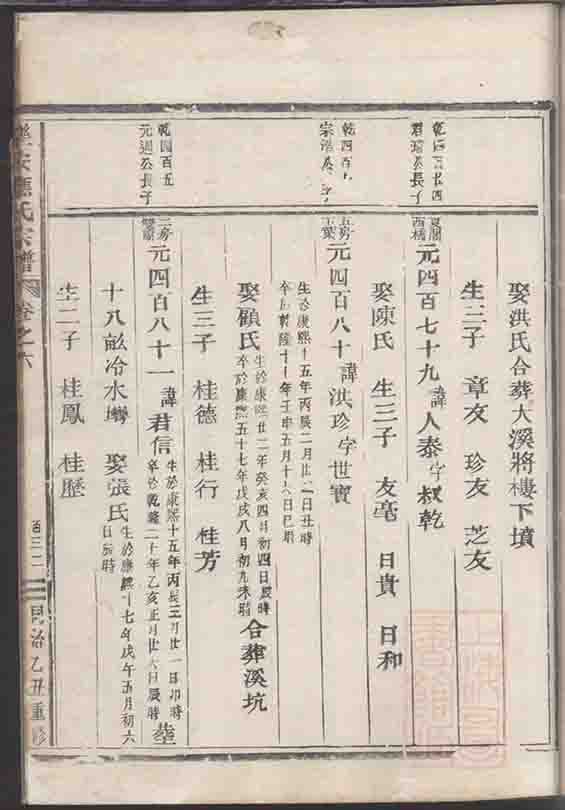 娶洪氏合葬大溪將樓下墳
生三子 章友 珍友 芝友
乾四百七十四
君瑞公長子
夏閣
西橋
元四百七十九諱人泰字叔乾
娶陳氏 生三子 友亳 日貴 日和
乾四百
宗
五房
元四百八十諱洪珍字世寶
生於康熙十五年丙辰二月廿一日丑時
卒於乾隆十七年壬申五月十八日巳時
娶顧氏
生於康熙廿二年癸亥四月初四日辰時
卒於康熙五十七年戊戌八月初九未時
合葬溪坑
生三子 桂德 桂行 桂芳
乾四百五
元迥公長子
三房
元四百八十一諱君信
生於康熙十五年丙辰三月廿一日卯時
卒於乾隆二十年乙亥正月廿六日辰時
葬
十八畝冷水塆 娶張氏
生於康熙十七年戊午五月初六
日辰時
生二子 桂鳳 桂歷
樂安應氏宗譜 卷之六
百三二
同治乙丑重修